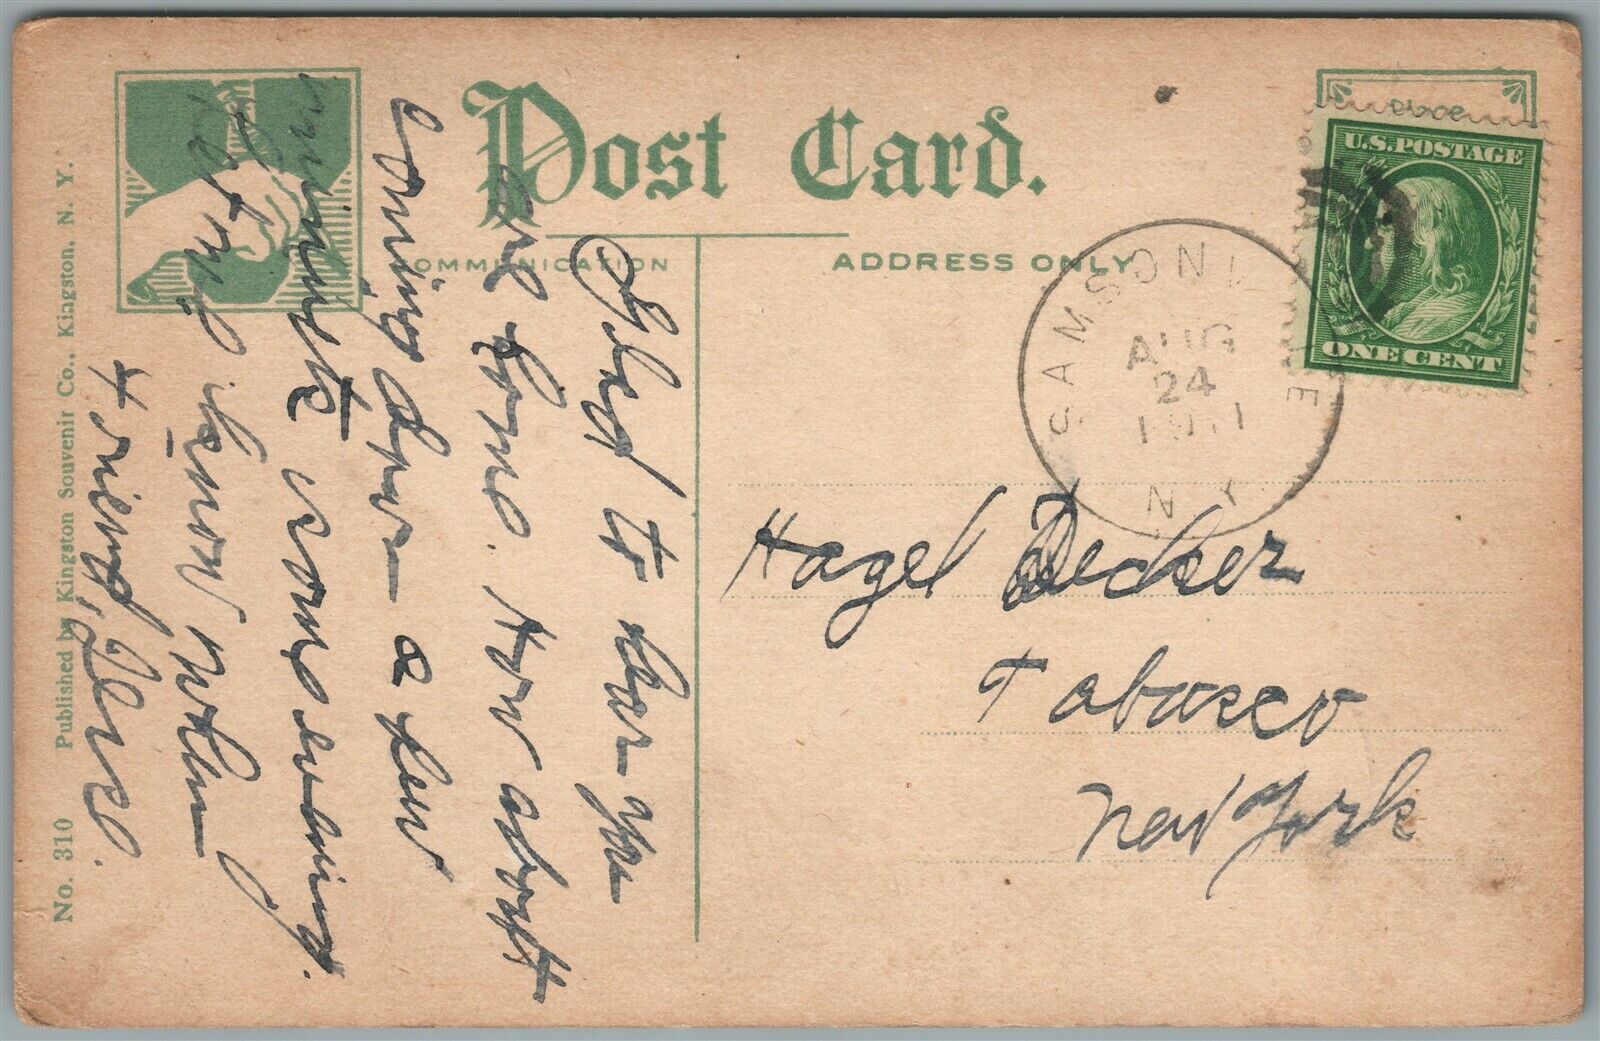 Post Card.
COMMUNICATION
ADDRESS ONLY
U.S. POSTAGE
ONE CENT
SAMSONVILLE
AUG
24
1911
N.Y.
Hazel Decker
Tabasco
New York
Glad to hear you
are home. How about
coming down a few
minute some evening.
let me know when
Friend,
No. 310 Published by Kingston Souvenir Co., Kingston, N. Y.